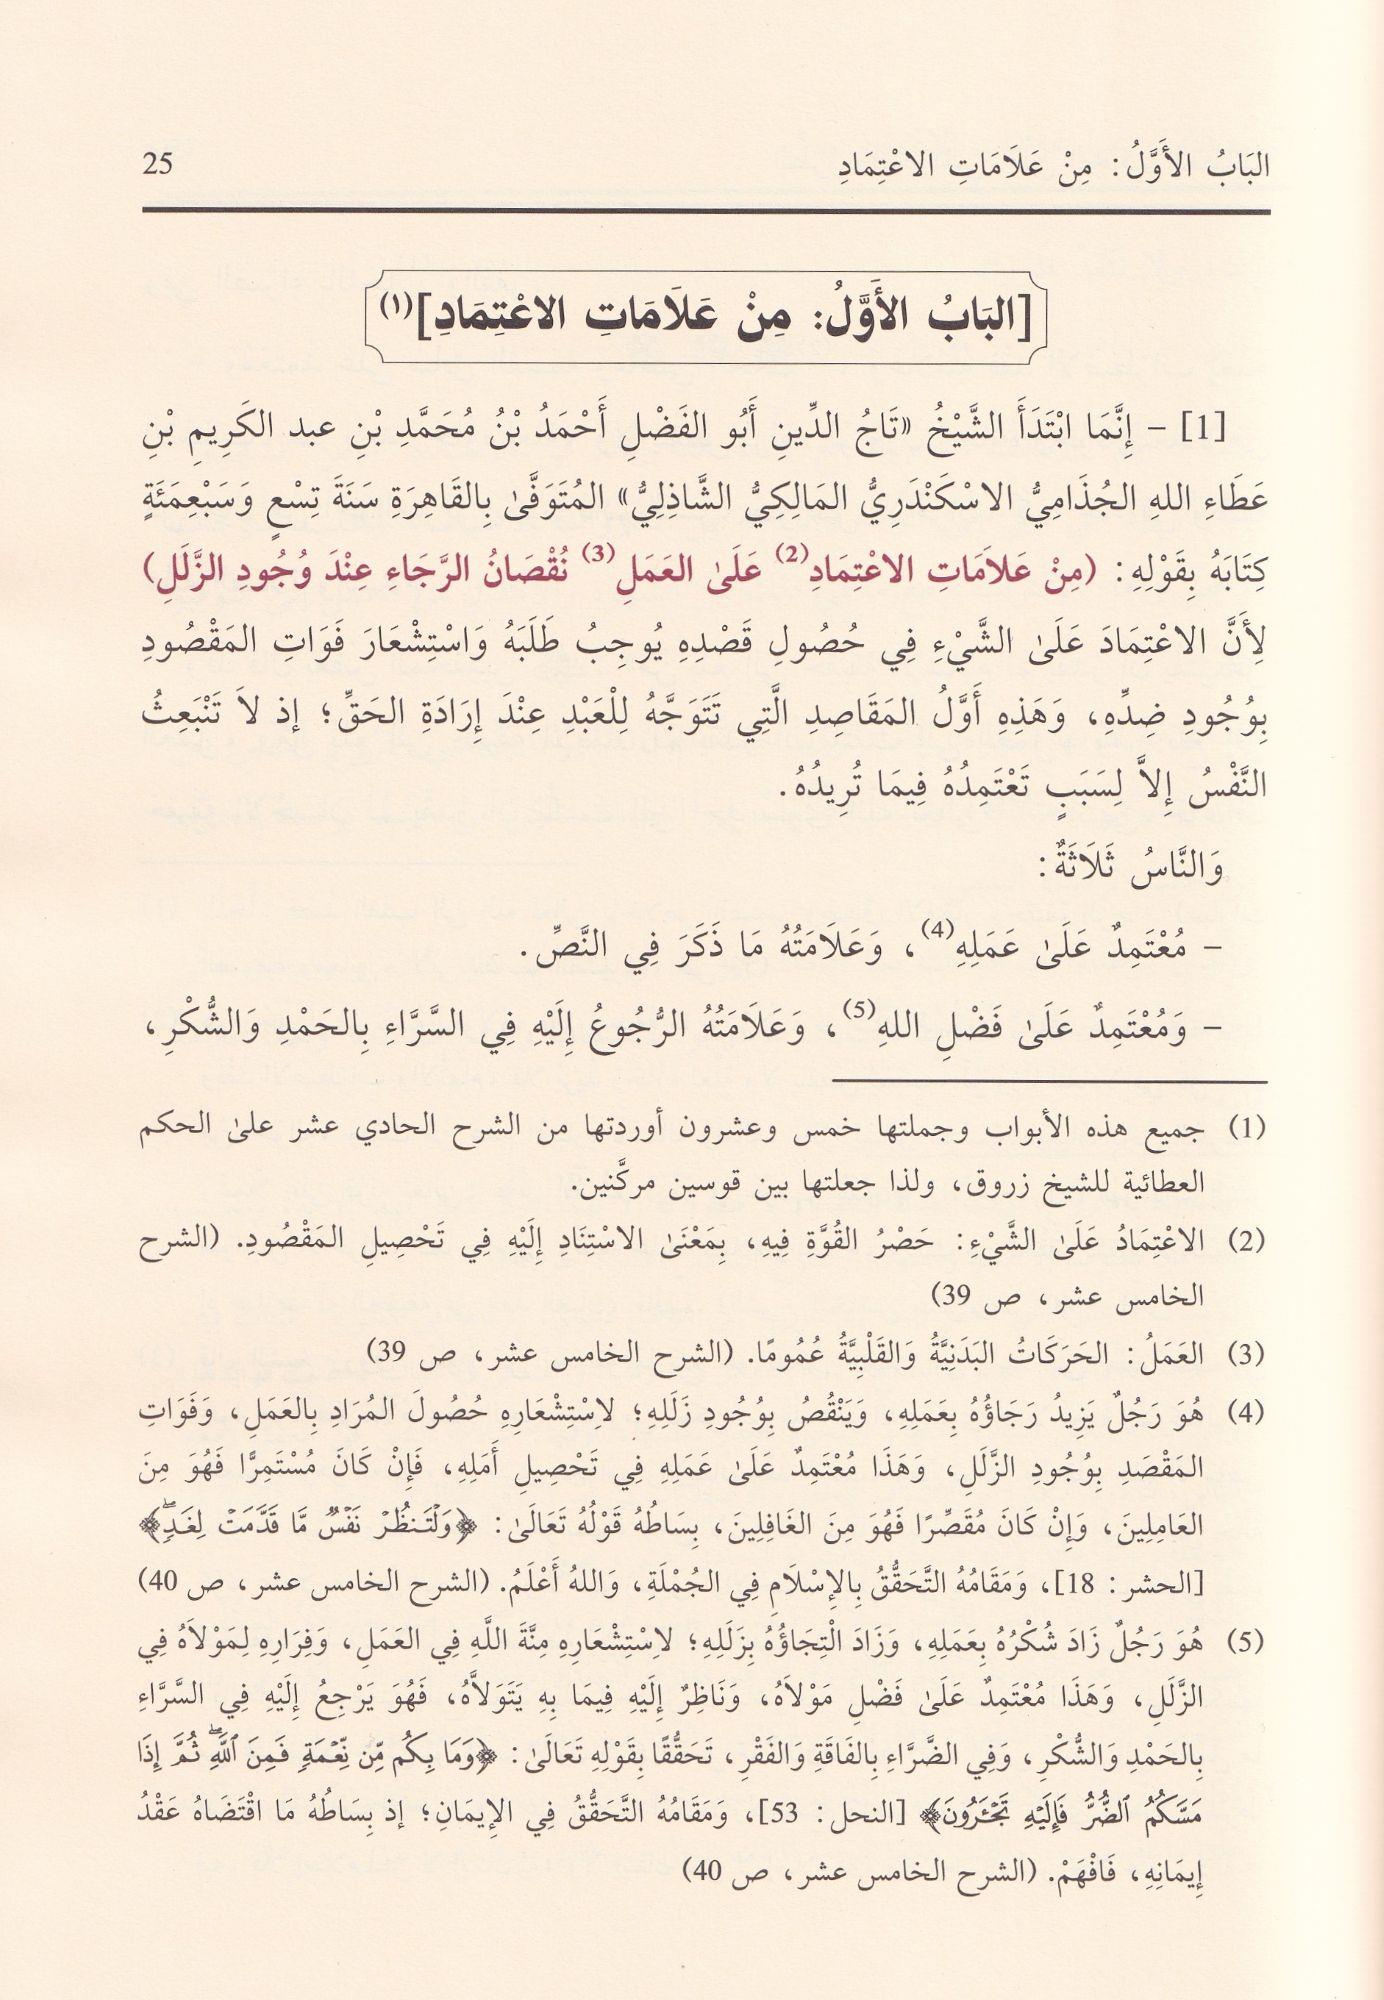 البَابُ الأَوَّلُ: مِنْ عَلَامَاتِ الاعْتِمَادِ 25
[البَابُ الأَوَّلُ: مِنْ عَلَامَاتِ الاعْتِمَادِ](١)
[1] - إِنَّمَا ابْتَدَأَ الشَّيْخُ «تَاجُ الدِّينِ أَبُو الفَضْلِ أَحْمَدُ بْنُ مُحَمَّدِ بْنِ عبد الكَرِيمِ بْنِ
عَطَاءِ اللهِ الجُذَامِيُّ الاسْكَنْدَرِيُّ المَالِكِيُّ الشَّاذِلِيُّ» المُتَوَفَّىٰ بِالقَاهِرَةِ سَنَةَ تِسْعٍ وَسَبْعِمَئَةٍ
كِتَابَهُ بِقَوْلِهِ: (مِنْ عَلاَمَاتِ الاعْتِمَادِ(2) عَلَىٰ العَمَلِ(3) نُقْصَانُ الرَّجَاءِ عِنْدَ وُجُودِ الزَّلَلِ)
لِأَنَّ الاعْتِمَادَ عَلَىٰ الشَّيْءِ فِي حُصُولِ قَصْدِهِ يُوجِبُ طَلَبَهُ وَاسْتِشْعَارَ فَوَاتِ المَقْصُودِ
بِوُجُودِ ضِدِّهِ، وَهَذِهِ أَوَّلُ المَقَاصِدِ الَّتِي تَتَوَجَّهُ لِلْعَبْدِ عِنْدَ إِرَادَةِ الحَقِّ؛ إذ لاَ تَنْبَعِثُ
النَّفْسُ إِلاَّ لِسَبَبٍ تَعْتَمِدُهُ فِيمَا تُرِيدُهُ.
وَالنَّاسُ ثَلَاثَةٌ:
- مُعْتَمِدٌ عَلَىٰ عَمَلِهِ(4)، وَعَلَامَتُهُ مَا ذَكَرَ فِي النَّصِّ.
- وَمُعْتَمِدٌ عَلَىٰ فَضْلِ اللهِ(5)، وَعَلَامَتُهُ الرُّجُوعُ إِلَيْهِ فِي السَّرَّاءِ بِالحَمْدِ وَالشُّكْرِ،
(1) جميع هذه الأبواب وجملتها خمس وعشرون أوردتها من الشرح الحادي عشر علىٰ الحكم
العطائية للشيخ زروق، ولذا جعلتها بين قوسين مركَّنين.
(2) الاعْتِمَادُ عَلَىٰ الشَّيْءِ: حَصْرُ القُوَّةِ فِيهِ، بِمَعْنَىٰ الاسْتِنَادِ إِلَيْهِ فِي تَحْصِيلِ المَقْصُودِ. (الشرح
الخامس عشر، ص 39)
(3) العَمَلُ: الحَرَكَاتُ البَدَنِيَّةُ وَالقَلْبِيَّةُ عُمُومًا. (الشرح الخامس عشر، ص 39)
(4) هُوَ رَجُلٌ يَزِيدُ رَجَاؤُهُ بِعَمَلِهِ، وَيَنْقُصُ بِوُجُودِ زَلَلِهِ؛ لاِسْتِشْعَارِهِ حُصُولَ المُرَادِ بِالعَمَلِ، وَفَوَاتِ
المَقْصَدِ بِوُجُودِ الزَّلَلِ، وَهَذَا مُعْتَمِدٌ عَلَىٰ عَمَلِهِ فِي تَحْصِيلِ أَمَلِهِ، فَإِنْ كَانَ مُسْتَمِرًّا فَهُوَ مِنَ
العَامِلِينَ، وَإِنْ كَانَ مُقَصِّرًا فَهُوَ مِنَ الغَافِلِينَ، بِسَاطُهُ قَوْلُهُ تَعَالَىٰ: ﴿وَلْتَنظُرْ نَفْسٌ مَّا قَدَّمَتْ لِغَدٍۖ﴾
[الحشر: 18]، وَمَقَامُهُ التَّحَقُّقُ بِالإِسْلَامِ فِي الجُمْلَةِ، وَاللهُ أَعْلَمُ. (الشرح الخامس عشر، ص 40)
(5) هُوَ رَجُلٌ زَادَ شُكْرُهُ بِعَمَلِهِ، وَزَادَ الْتِجَاؤُهُ بِزَلَلِهِ؛ لاِسْتِشْعَارِهِ مِنَّةَ اللَّهِ فِي العَمَلِ، وَفِرَارِهِ لِمَوْلاَهُ فِي
الزَّلَلِ، وَهَذَا مُعْتَمِدٌ عَلَىٰ فَضْلِ مَوْلاَهُ، وَنَاظِرٌ إِلَيْهِ فِيمَا بِهِ يَتَوَلاَّهُ، فَهُوَ يَرْجِعُ إِلَيْهِ فِي السَّرَّاءِ
بِالحَمْدِ وَالشُّكْرِ، وَفِي الضَّرَّاءِ بِالفَاقَةِ وَالفَقْرِ، تَحَقُّقًا بِقَوْلِهِ تَعَالَىٰ: ﴿وَمَا بِكُم مِّن نِّعْمَةٍ فَمِنَ ٱللَّهِۖ ثُمَّ إِذَا
مَسَّكُمُ ٱلضُّرُّ فَإِلَيْهِ تَجْـَٔرُونَ﴾ [النحل: 53]، وَمَقَامُهُ التَّحَقُّقُ فِي الإِيمَانِ؛ إذ بِسَاطُهُ مَا اقْتَضَاهُ عَقْدُ
إِيمَانِهِ، فَافْهَمْ. (الشرح الخامس عشر، ص 40)